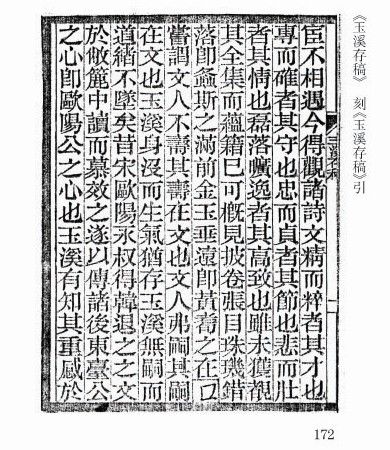 《玉溪存稿》 刻《玉溪存稿》引
宦不相遇今得觀諸詩文精而粹者其才也
專而確者其守也忠而貞者其節也悲而壯
者其情也磊落曠逸者其高致也雖未獲覩
其全集而蘊籍已可槪見披卷張目珠璣錯
落卽螽斯之滿前金玉垂遠卽黃耈之在口
嘗謂文人不壽其壽在文也文人弗嗣其嗣
在文也玉溪身沒而生氣猶存玉溪無嗣而
道緒不墜矣昔宋歐陽永叔得韓退之之文
於敝簏中讀而慕效之遂以傳諸後東臺公
之心卽歐陽公之心也玉溪有知其重感於
172